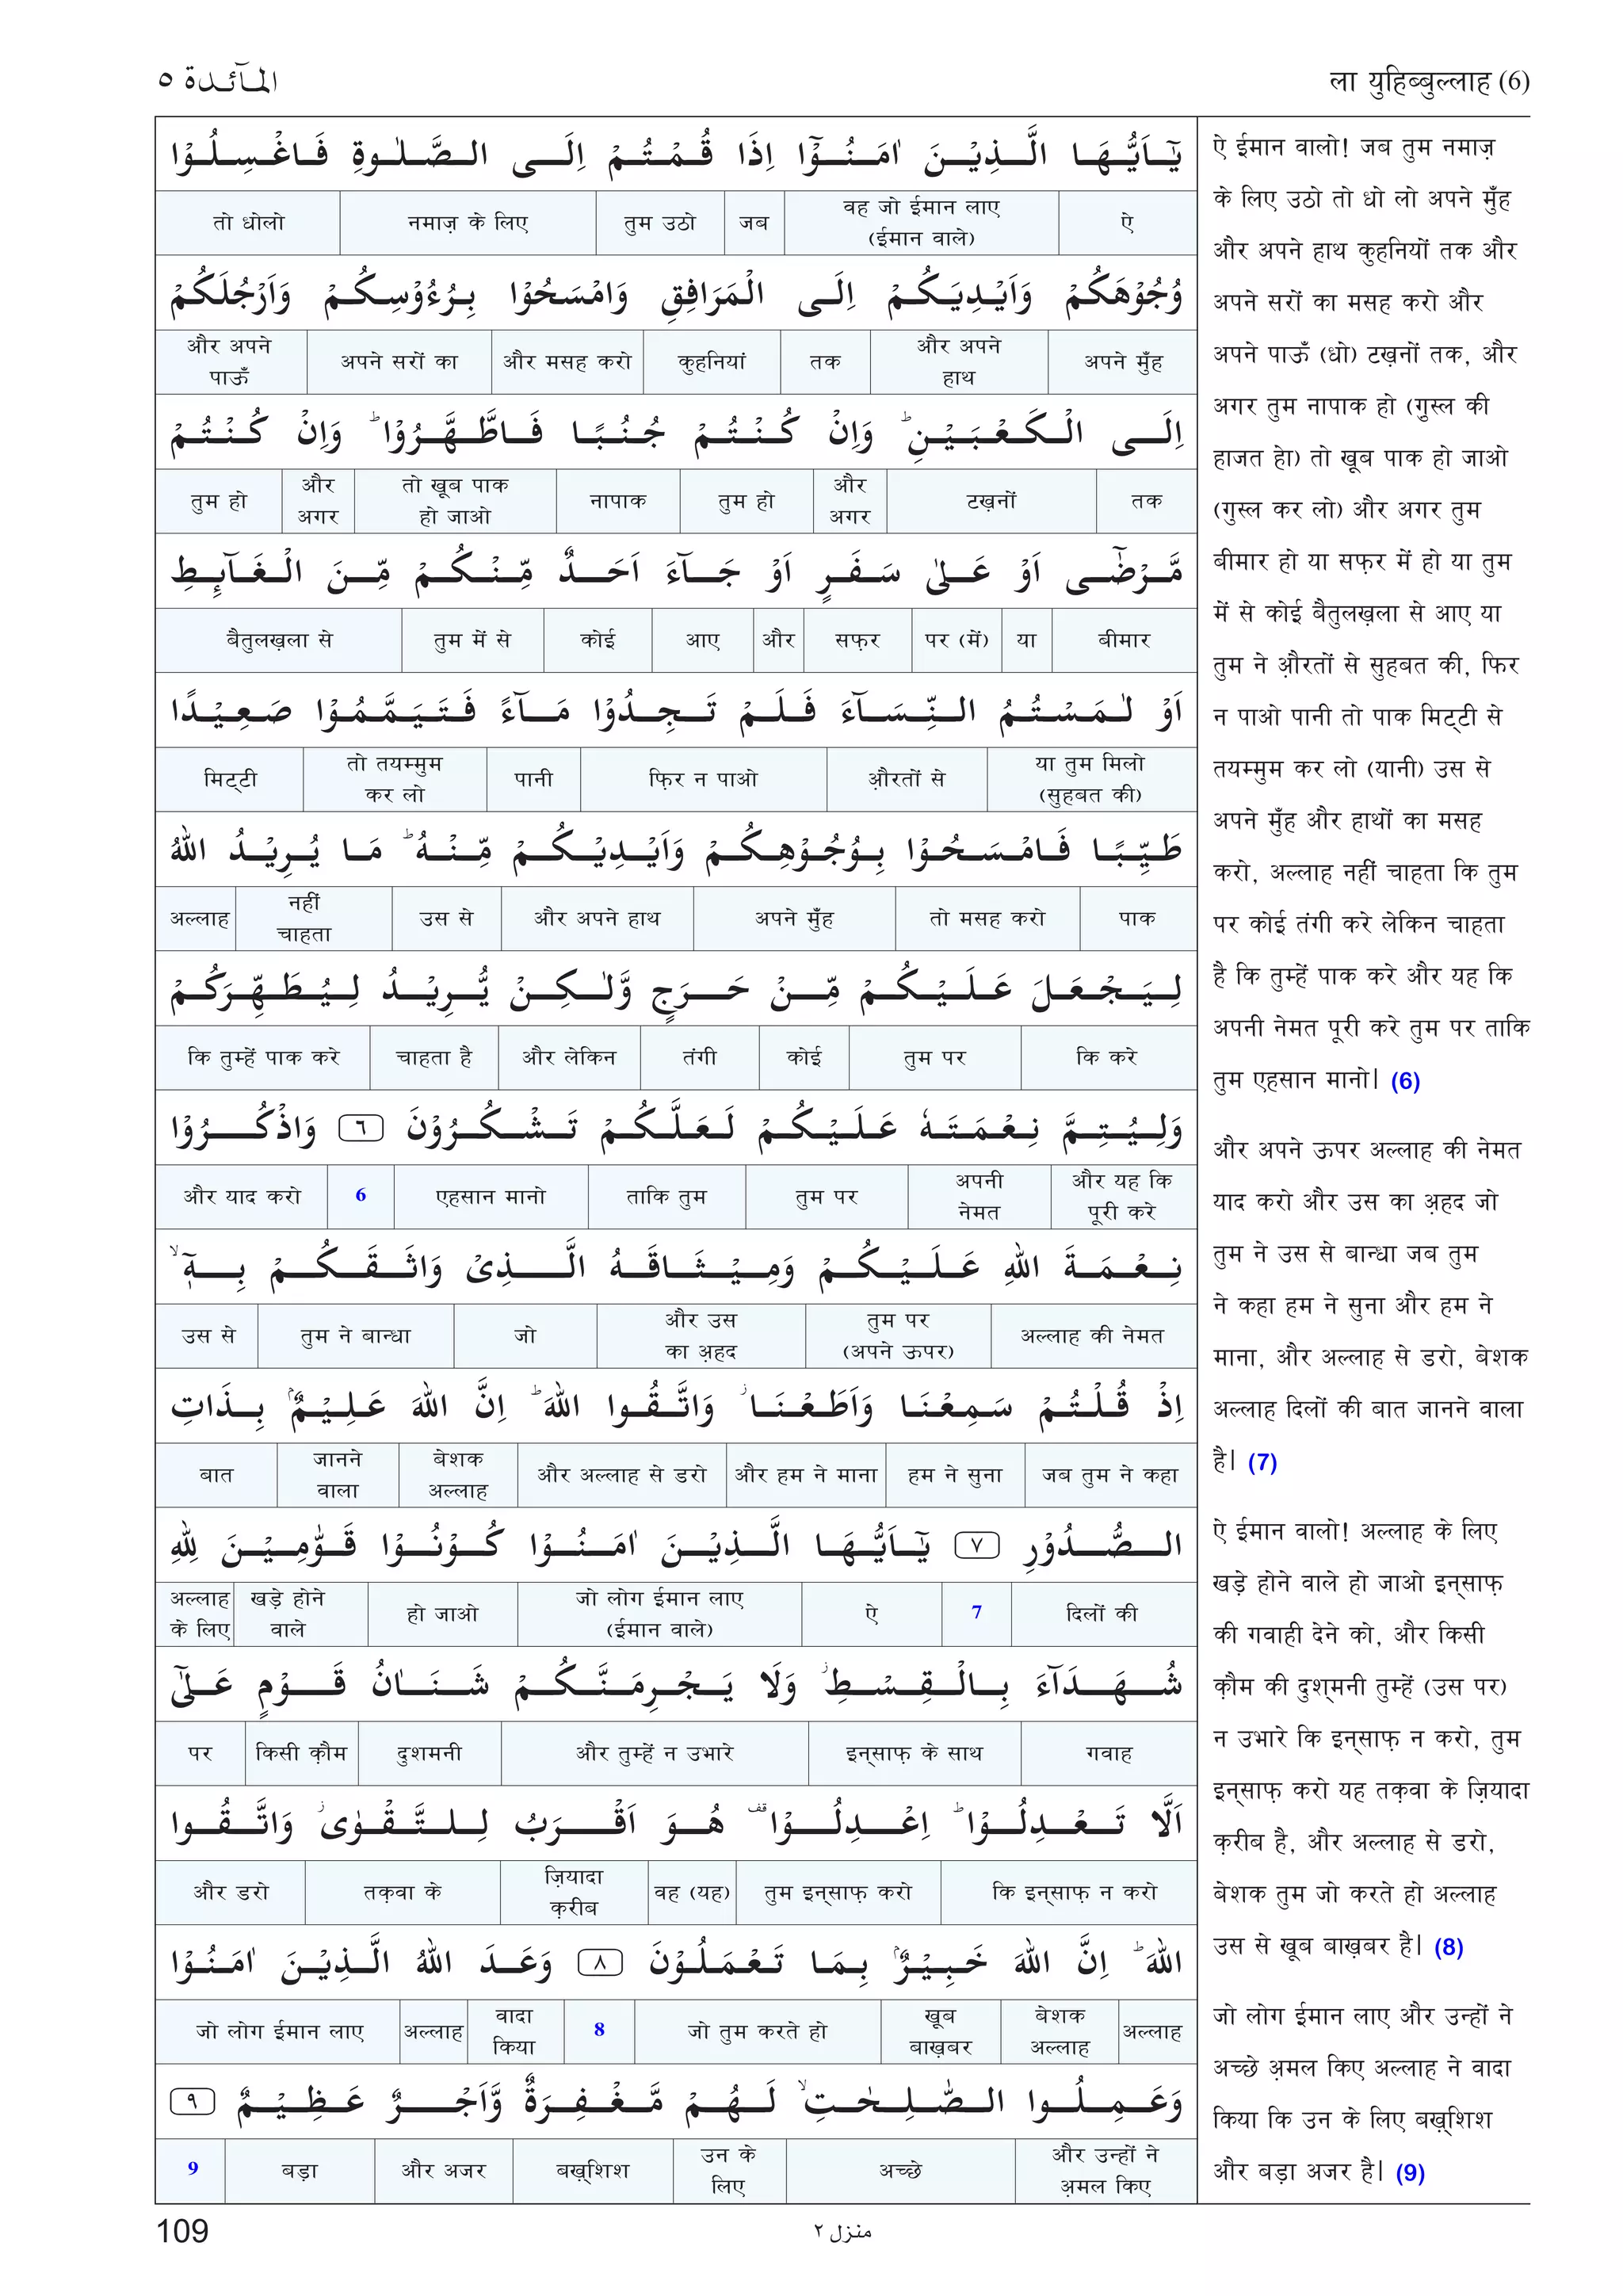 المآئدة ٥
ला युहिब्बुल्लाह (6)
يٰۤاَيُّهَا الَّذِيْنَ اٰمَنُوْۤا اِذَا قُمْتُمْ اِلَى الصَّلٰوةِ فَاغْسِلُوْا
ऐ | वह जो ईमान लाए (ईमान वाले) | जब | तुम उठो | नमाज़ के लिए | तो धोलो
وُجُوْهَكُمْ وَاَيْدِيَكُمْ اِلَى الْمَرَافِقِ وَامْسَحُوْا بِرُءُوْسِكُمْ وَاَرْجُلَكُمْ
अपने मुँह | और अपने हाथ | तक | कुहनियां | और मसह करो | अपने सरों का | और अपने पाऊँ
اِلَى الْكَعْبَيْنِ ؕ وَاِنْ كُنْتُمْ جُنُبًا فَاطَّهَّرُوْا ؕ وَاِنْ كُنْتُمْ
तक | टख़नों | और अगर | तुम हो | नापाक | तो खूब पाक हो जाओ | और अगर | तुम हो
مَّرْضٰۤى اَوْ عَلٰى سَفَرٍ اَوْ جَآءَ اَحَدٌ مِّنْكُمْ مِّنَ الْغَآئِطِ
बीमार | या | पर (में) | सफ़र | और | आए | कोई | तुम में से | बैतुलख़ला से
اَوْ لٰمَسْتُمُ النِّسَآءَ فَلَمْ تَجِدُوْا مَآءً فَتَيَمَّمُوْا صَعِيْدًا
या तुम मिलो (सुहबत की) | औ़रतों से | फिर न पाओ | पानी | तो तयम्मुम कर लो | मिट्टी
طَيِّبًا فَامْسَحُوْا بِوُجُوْهِكُمْ وَاَيْدِيْكُمْ مِّنْهُ ؕ مَا يُرِيْدُ اللّٰهُ
पाक | तो मसह करो | अपने मुँह | और अपने हाथ | उस से | नहीं चाहता | अल्लाह
لِيَجْعَلَ عَلَيْكُمْ مِّنْ حَرَجٍ وَّلٰكِنْ يُّرِيْدُ لِيُطَهِّرَكُمْ
कि करे | तुम पर | कोई | तंगी | और लेकिन | चाहता है | कि तुम्हें पाक करे
وَلِيُتِمَّ نِعْمَتَهٗ عَلَيْكُمْ لَعَلَّكُمْ تَشْكُرُوْنَ ٦ وَاذْكُرُوْا
और यह कि पूरी करे | अपनी नेमत | तुम पर | ताकि तुम | एहसान मानो | 6 | और याद करो
نِعْمَةَ اللّٰهِ عَلَيْكُمْ وَمِيْثَاقَهُ الَّذِىْ وَاثَقَكُمْ بِهٖۤ ۙ
अल्लाह की नेमत | तुम पर (अपने ऊपर) | और उस का अ़हद | जो | तुम ने बान्धा | उस से
اِذْ قُلْتُمْ سَمِعْنَا وَاَطَعْنَا ؗ وَاتَّقُوا اللّٰهَ ؕ اِنَّ اللّٰهَ عَلِيْمٌۢ بِذَاتِ
जब तुम ने कहा | हम ने सुना | और हम ने माना | और अल्लाह से डरो | बेशक अल्लाह | जानने वाला | बात
الصُّدُوْرِ ٧ يٰۤاَيُّهَا الَّذِيْنَ اٰمَنُوْا كُوْنُوْا قَوّٰمِيْنَ لِلّٰهِ
दिलों की | 7 | ऐ | जो लोग ईमान लाए (ईमान वाले) | हो जाओ | खड़े होने वाले | अल्लाह के लिए
شُهَدَآءَ بِالْقِسْطِ ؗ وَلَا يَجْرِمَنَّكُمْ شَنَاٰنُ قَوْمٍ عَلٰٓى
गवाह | इन्साफ़ के साथ | और तुम्हें न उभारे | दुशमनी | किसी क़ौम | पर
اَلَّا تَعْدِلُوْا ؕ اِعْدِلُوْا ۫ هُوَ اَقْرَبُ لِلتَّقْوٰى ؗ وَاتَّقُوا
कि इन्साफ़ न करो | तुम इन्साफ़ करो | वह (यह) | ज़ियादा क़रीब | तक़वा के | और डरो
اللّٰهَ ؕ اِنَّ اللّٰهَ خَبِيْرٌۢ بِمَا تَعْمَلُوْنَ ٨ وَعَدَ اللّٰهُ الَّذِيْنَ اٰمَنُوْا
अल्लाह | बेशक अल्लाह | खूब बाख़बर | जो तुम करते हो | 8 | वादा किया | अल्लाह | जो लोग ईमान लाए
وَعَمِلُوا الصّٰلِحٰتِ ۙ لَهُمْ مَّغْفِرَةٌ وَّاَجْرٌ عَظِيْمٌ ٩
और उन्हों ने अ़मल किए | अच्छे | उन के लिए | बख़्शिश | और अजर | बड़ा | 9
ऐ ईमान वालो! जब तुम नमाज़
के लिए उठो तो धो लो अपने मुँह
और अपने हाथ कुहनियों तक और
अपने सरों का मसह करो और
अपने पाऊँ (धो) टख़नों तक, और
अगर तुम नापाक हो (गुस्ल की
हाजत हो) तो खूब पाक हो जाओ
(गुस्ल कर लो) और अगर तुम
बीमार हो या सफ़र में हो या तुम
में से कोई बैतुलख़ला से आए या
तुम ने औ़रतों से सुहबत की, फिर
न पाओ पानी तो पाक मिट्टी से
तयम्मुम कर लो (यानी) उस से
अपने मुँह और हाथों का मसह
करो, अल्लाह नहीं चाहता कि तुम
पर कोई तंगी करे लेकिन चाहता
है कि तुम्हें पाक करे और यह कि
अपनी नेमत पूरी करे तुम पर ताकि
तुम एहसान मानो। (6)
और अपने ऊपर अल्लाह की नेमत
याद करो और उस का अ़हद जो
तुम ने उस से बान्धा जब तुम
ने कहा हम ने सुना और हम ने
माना, और अल्लाह से डरो, बेशक
अल्लाह दिलों की बात जानने वाला
है। (7)
ऐ ईमान वालो! अल्लाह के लिए
खड़े होने वाले हो जाओ इन्साफ़
की गवाही देने को, और किसी
क़ौम की दुश्मनी तुम्हें (उस पर)
न उभारे कि इन्साफ़ न करो, तुम
इन्साफ़ करो यह तक़वा के ज़ियादा
क़रीब है, और अल्लाह से डरो,
बेशक तुम जो करते हो अल्लाह
उस से खूब बाख़बर है। (8)
जो लोग ईमान लाए और उन्हों ने
अच्छे अ़मल किए अल्लाह ने वादा
किया कि उन के लिए बख़्शिश
और बड़ा अजर है। (9)
109
منزل ٢